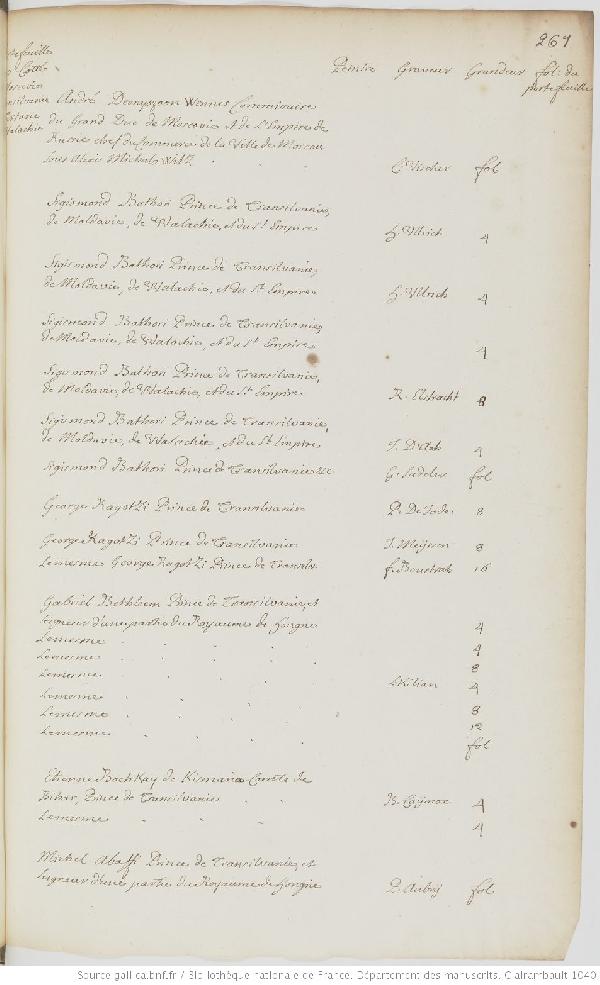 267
Peintre Graveur Grandeur fol. du
portefeuille
André Denys Winius Commissaire
du Grand Duc de Moscovie et de l'Empire de
Russie chef du Commerce de la Ville de Moscou
sous Alexis C. Vischer fol
Sigismond Bathori Prince de Transilvanie,
de Moldavie, de Walachie, et du St. Empire H. Ulrich 4
Sigismond Bathori Prince de Transilvanie,
de Moldavie, de Walachie, et du St. Empire H. Ulrich 4
Sigismond Bathori Prince de Transilvanie,
de Moldavie, de Walachie, et du St. Empire 4
Sigismond Bathori Prince de Transilvanie,
de Moldavie, de Walachie, et du St. Empire R. 8
Sigismond Bathori Prince de Transilvanie,
de Moldavie, de Walachie, et du St. Empire 4
Sigismond Bathori Prince de Transilvanie &c G. Sadeler fol
George Ragotzi Prince de Transilvanie P. De Jode 8
George Ragotzi Prince de Transilvanie J. Meijsens 8
Lemesme George Ragotzi Prince de Transilv. f. 16
Gabriel Bethleem Prince de Transilvanie, et
seigneur d'une partie du Royaume de hongrie 4
Lemesme 4
Lemesme 8
Lemesme Kilian 4
Lemesme 8
Lemesme 12
Lemesme fol
Etienne Bochkay de Kismaria Comte de
Bihar, Prince de Transilvanie B. Caymox 4
Lemesme 4
Michel Abaffi Prince de Transilvanie, et
seigneur d'une partie du Royaume de hongrie P. Aubry fol
Source gallica.bnf.fr / Bibliothèque nationale de France. Département des manuscrits. Clairambault 1040